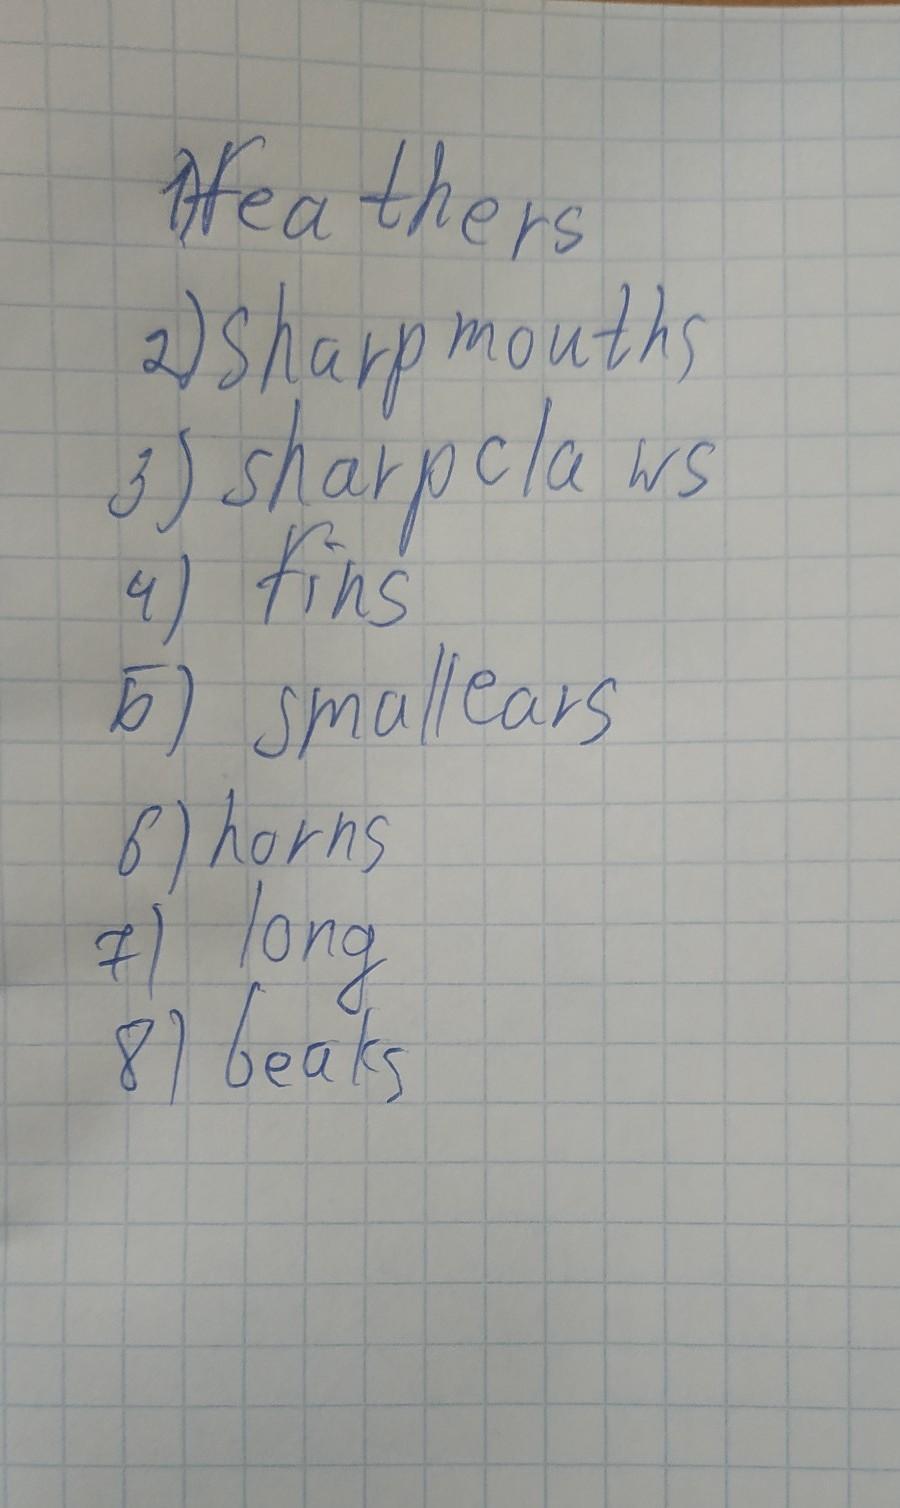 1) feathers
2) sharp mouths
3) sharp claws
4) fins
5) small ears
6) horns
7) long
8) beaks